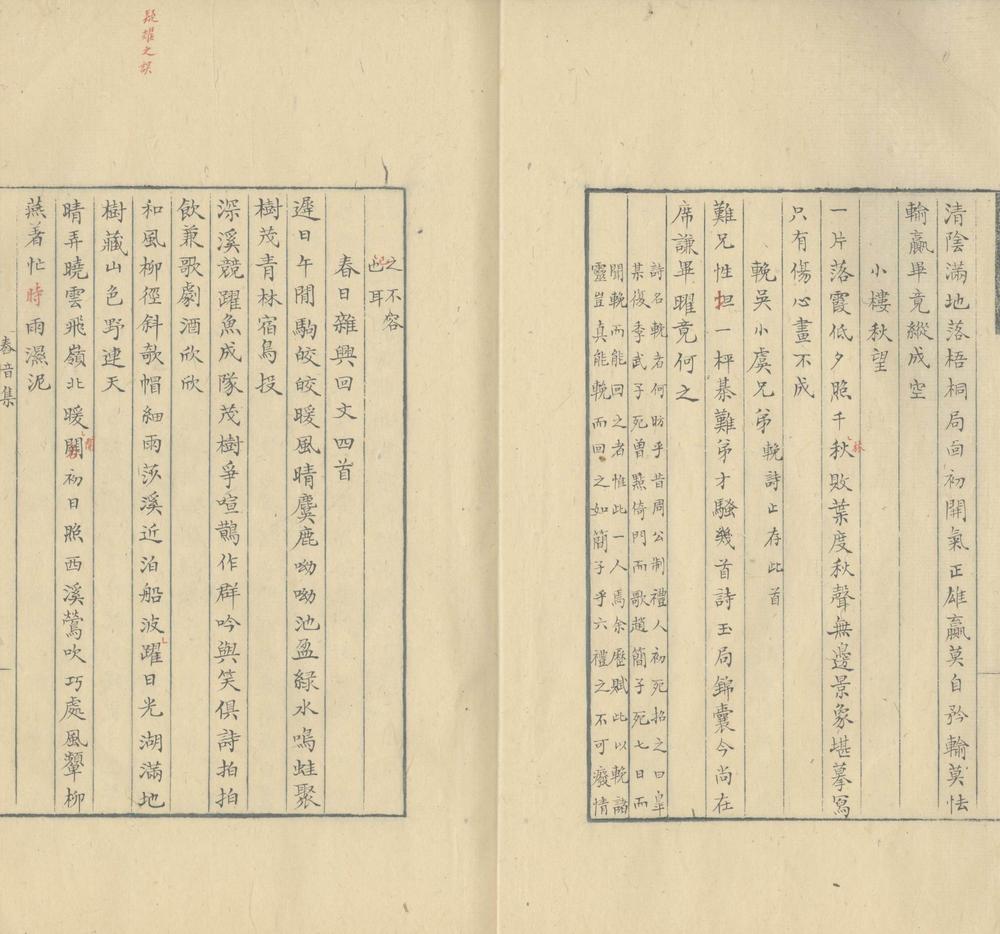 清陰滿地落梧桐局面初開氣正雄贏莫自矜輸莫怯
輸贏畢竟縱成空
小樓秋望
一片落霞低夕照千秋敗葉度秋聲無邊景象堪摹寫
林
只有傷心畫不成
輓吳小虞兄弟輓詩止存此首
難兄性坦一枰棊難弟才騷幾首詩玉局錦囊今尚在
席謙畢曜竟何之
詩名輓者何昉乎昔周公制禮人初死招之曰臯
某復季武子死曾點倚門而歌趙簡子死七日而
聞輓而能回之者惟此一人焉余歷賦此以輓諸
靈豈真能輓而回之如簡子乎六禮之不可廢情
之不容
已耳
春日雜興回文四首
遲日午閒駒皎皎暖風晴麌鹿呦呦池盈緑水鳴蛙聚
樹茂青林宿鳥投
深溪競躍魚成隊茂樹爭喧鵲作群吟與笑俱詩拍拍
飲兼歌劇酒欣欣
和風柳徑斜欹帽細雨莎溪近泊船波躍日光湖滿地
樹藏山色野連天
疑耀之誤
晴弄曉雲飛嶺北暖開初日照西溪鶯吹巧處風顰柳
燕著忙時雨濕泥
春音集